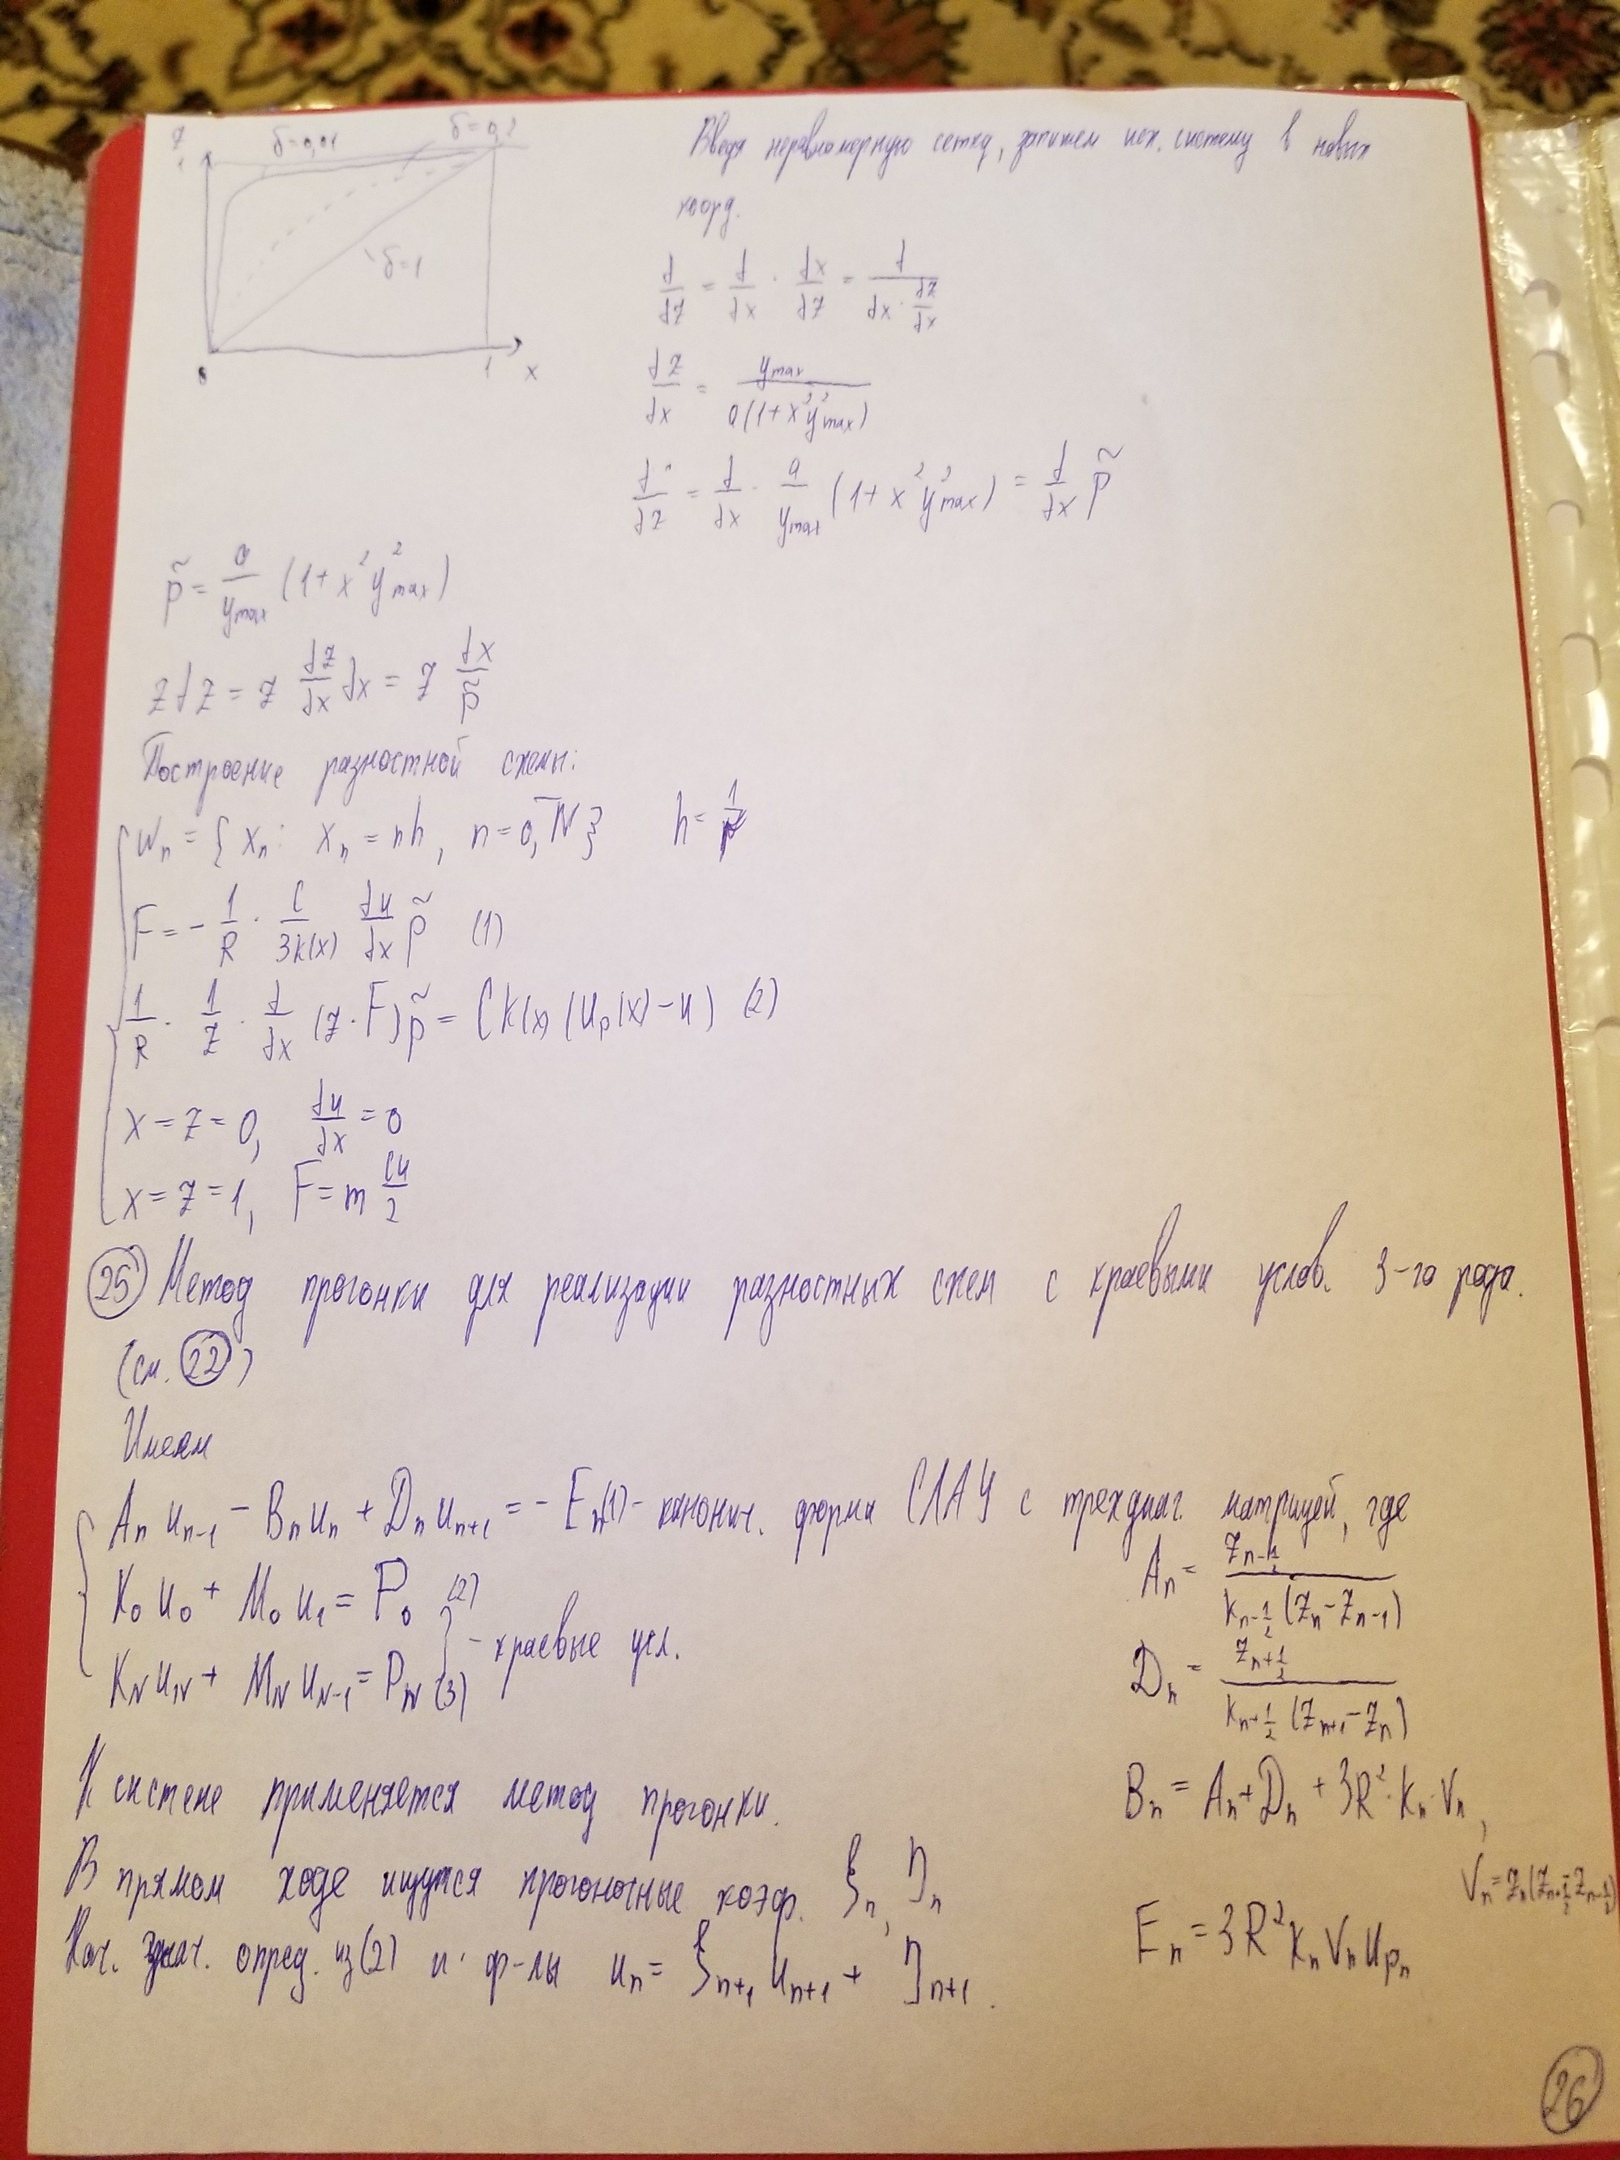 z
1
δ=0,01
δ=0,2
δ=1
0
1
x
Введя неравномерную сетку, запишем исх. систему в новых
коорд.
d/dz = d/dx · dx/dz = d/(dx · dz/dx)
dz/dx = y_max / (a(1+x²y²_max))
d/dz = d/dx · a/y_max (1+x²y²_max) = d/dx p̃
p̃ = a/y_max (1+x²y²_max)
z dz = z dz/dx dx = z dx/p̃
Построение разностной схемы:
w_n = { x_n : x_n = nh, n = 0,N̄ } h = 1/N
F = - 1/R · c/3k(x) du/dx p̃ (1)
1/R · 1/z · d/dx (z·F) p̃ = Ck(x) (u_p(x) - u) (2)
x = z = 0, du/dx = 0
x = z = 1, F = m cu/2
25 Метод прогонки для реализации разностных схем с краевыми услов. 3-го рода.
(см. 22)
Имеем
A_n u_{n-1} - B_n u_n + D_n u_{n+1} = - E_n (1) - канонич. форма СЛАУ с трехдиаг. матрицей, где
A_n = z_{n-1/2} / (k_{n-1/2} (z_n - z_{n-1}))
K_0 u_0 + M_0 u_1 = P_0 (2)
K_N u_N + M_N u_{N-1} = P_N (3)
- краевые усл.
D_n = z_{n+1/2} / (k_{n+1/2} (z_{n+1} - z_n))
К системе применяется метод прогонки.
B_n = A_n + D_n + 3R²·k_n·V_n,
В прямом ходе ищутся прогоночные коэф. ξ_n, η_n
V_n = z_n (z_{n+1/2} - z_{n-1/2})
Нач. знач. опред. из (2) и ф-лы u_n = ξ_{n+1} u_{n+1} + η_{n+1}.
E_n = 3R² k_n V_n u_{p_n}
26